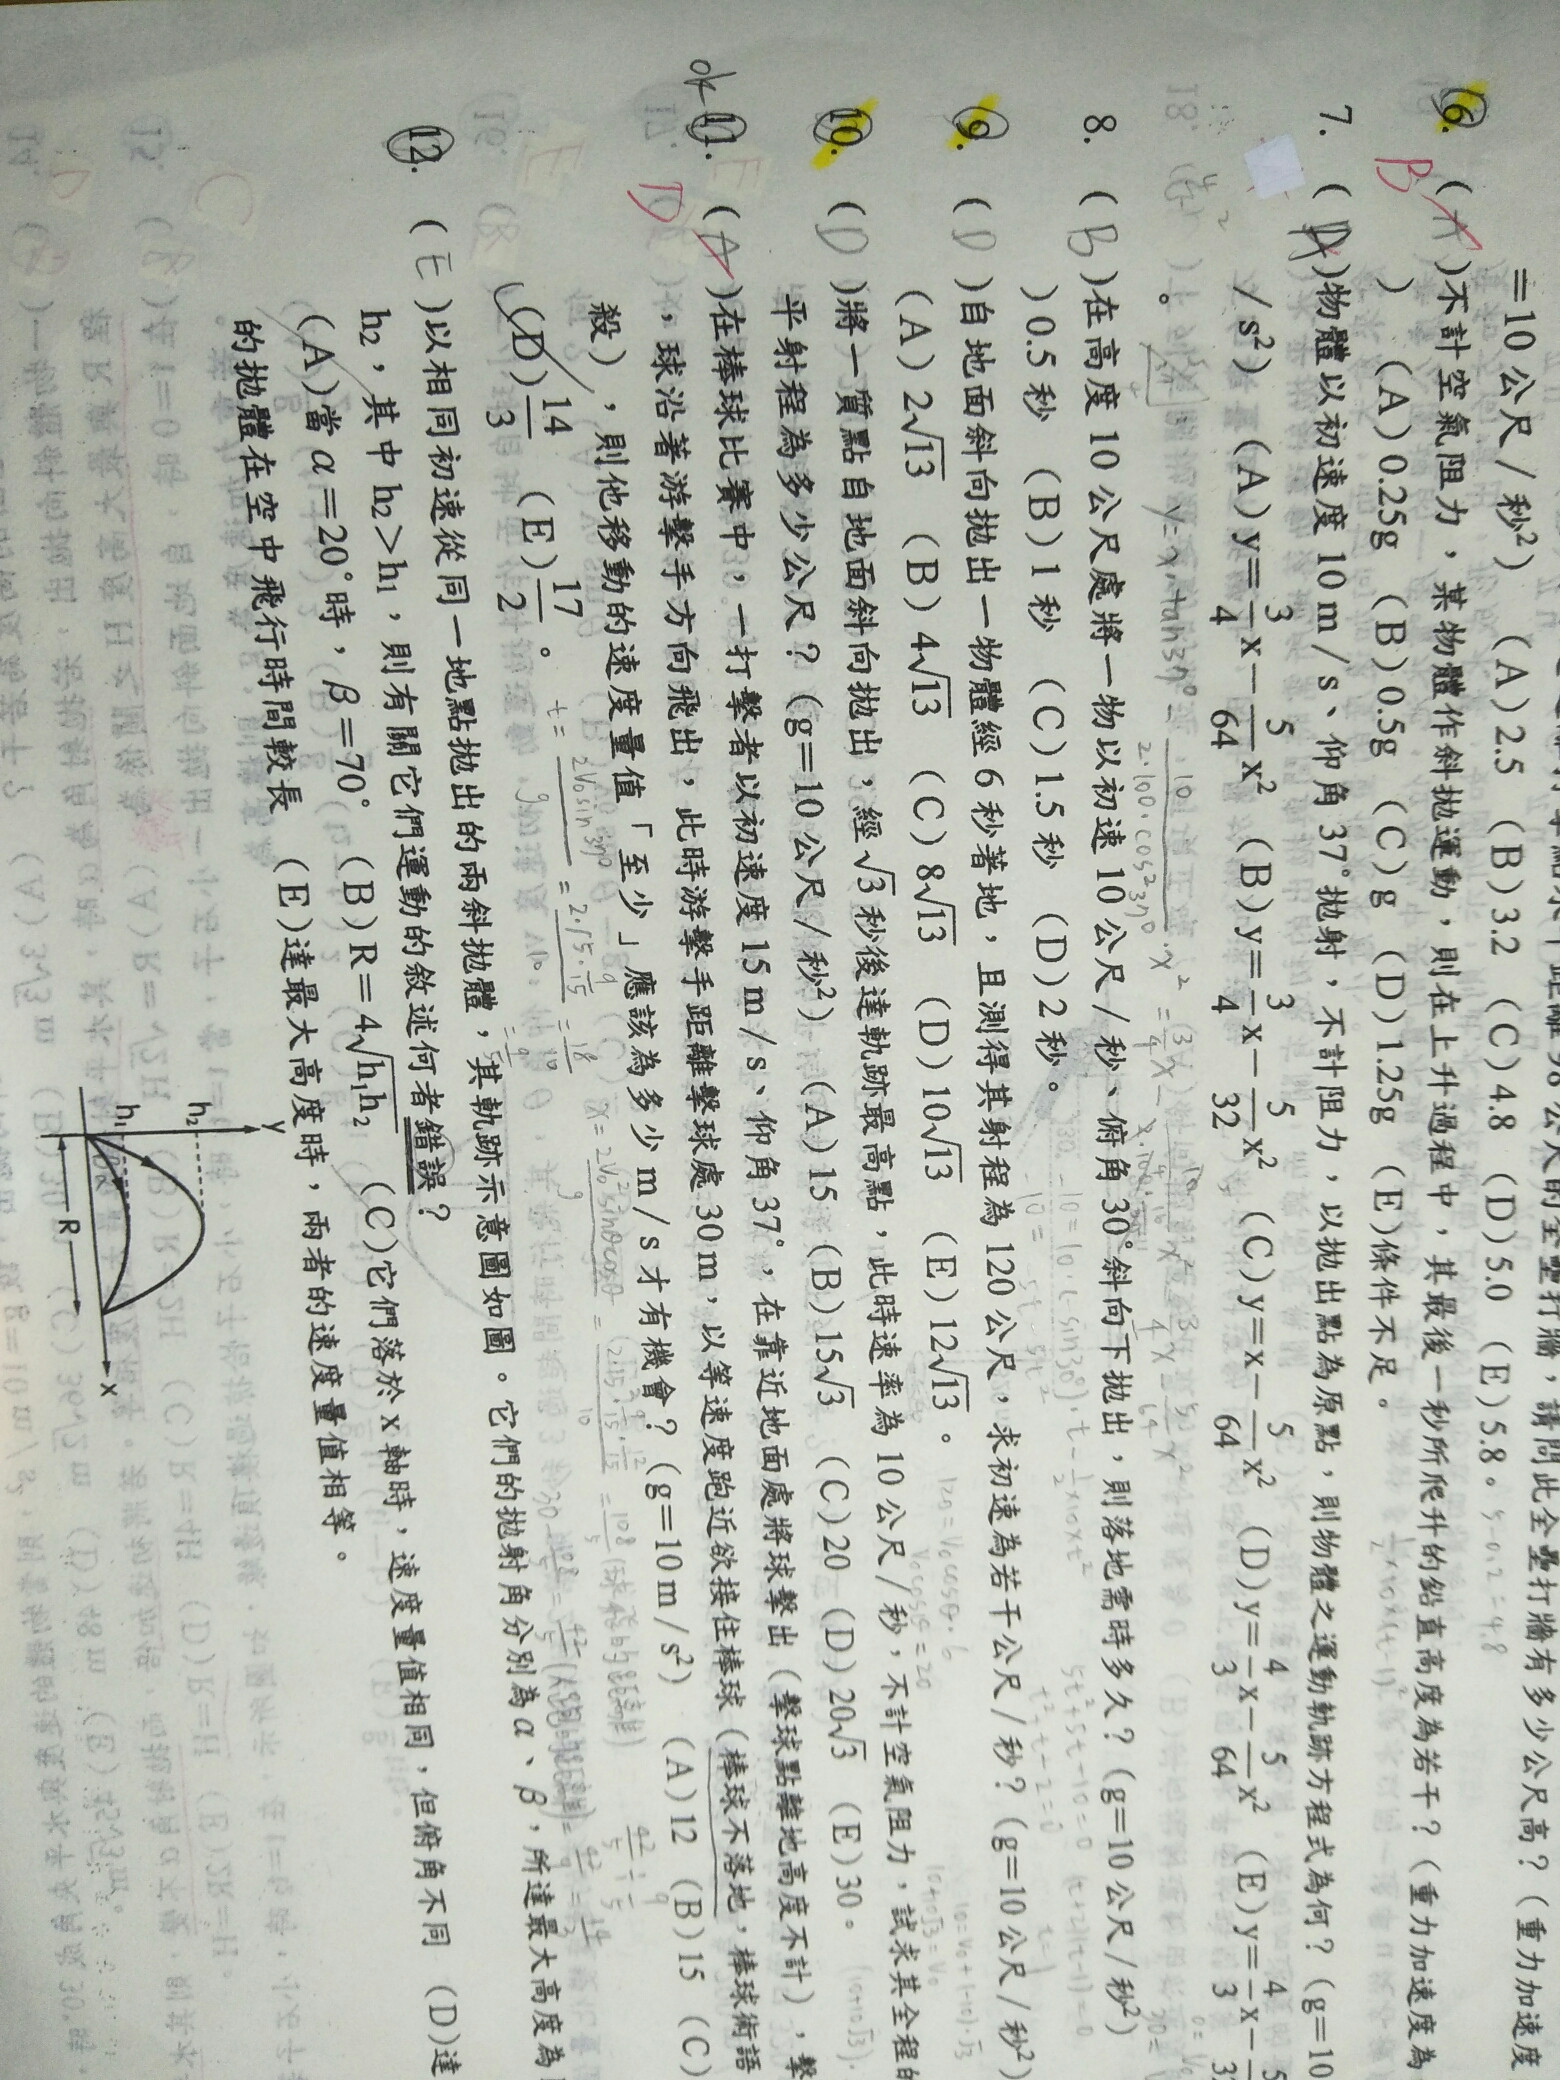 =10公尺/秒²) (A)2.5 (B)3.2 (C)4.8 (D)5.0 (E)5.8。 5-0.2=4.8
6. (A)不計空氣阻力,某物體作斜拋運動,則在上升過程中,其最後一秒所爬升的鉛直高度為若干?(重力加速度為
B ) (A)0.25g (B)0.5g (C)g (D)1.25g (E)條件不足。
7. (A)物體以初速度10m/s、仰角37°拋射,不計阻力,以拋出點為原點,則物體之運動軌跡方程式為何?(g=10
/s²) (A)y=3/4x-5/64x² (B)y=3/4x-5/32x² (C)y=x-5/64x² (D)y=4/3x-5/64x² (E)y=4/3x-
。
8. (B)在高度10公尺處將一物以初速10公尺/秒、俯角30°斜向下拋出,則落地需時多久?(g=10公尺/秒²)
)0.5秒 (B)1秒 (C)1.5秒 (D)2秒。
9. (D)自地面斜向拋出一物體經6秒著地,且測得其射程為120公尺,求初速為若干公尺/秒?(g=10公尺/秒²)
(A)2√13 (B)4√13 (C)8√13 (D)10√13 (E)12√13。
10. (D)將一質點自地面斜向拋出,經√3秒後達軌跡最高點,此時速率為10公尺/秒,不計空氣阻力,試求其全程的
平射程為多少公尺?(g=10公尺/秒²) (A)15 (B)15√3 (C)20 (D)20√3 (E)30。
ok 11. (A)在棒球比賽中,一打擊者以初速度15m/s、仰角37°,在靠近地面處將球擊出(擊球點離地高度不計),擊
D ,球沿著游擊手方向飛出,此時游擊手距離擊球處30m,以等速度跑近欲接住棒球(棒球不落地,棒球術語
殺),則他移動的速度量值「至少」應該為多少m/s才有機會?(g=10m/s²) (A)12 (B)15 (C)
(D)14/3 (E)17/2。
12. (E)以相同初速從同一地點拋出的兩斜拋體,其軌跡示意圖如圖。它們的拋射角分別為α、β,所達最大高度為
h₂,其中h₂>h₁,則有關它們運動的敘述何者錯誤?
(A)當α=20°時,β=70° (B)R=4√h₁h₂ (C)它們落於x軸時,速度量值相同,但俯角不同 (D)達
的拋體在空中飛行時間較長 (E)達最大高度時,兩者的速度量值相等。
y
h₂
h₁
R
x